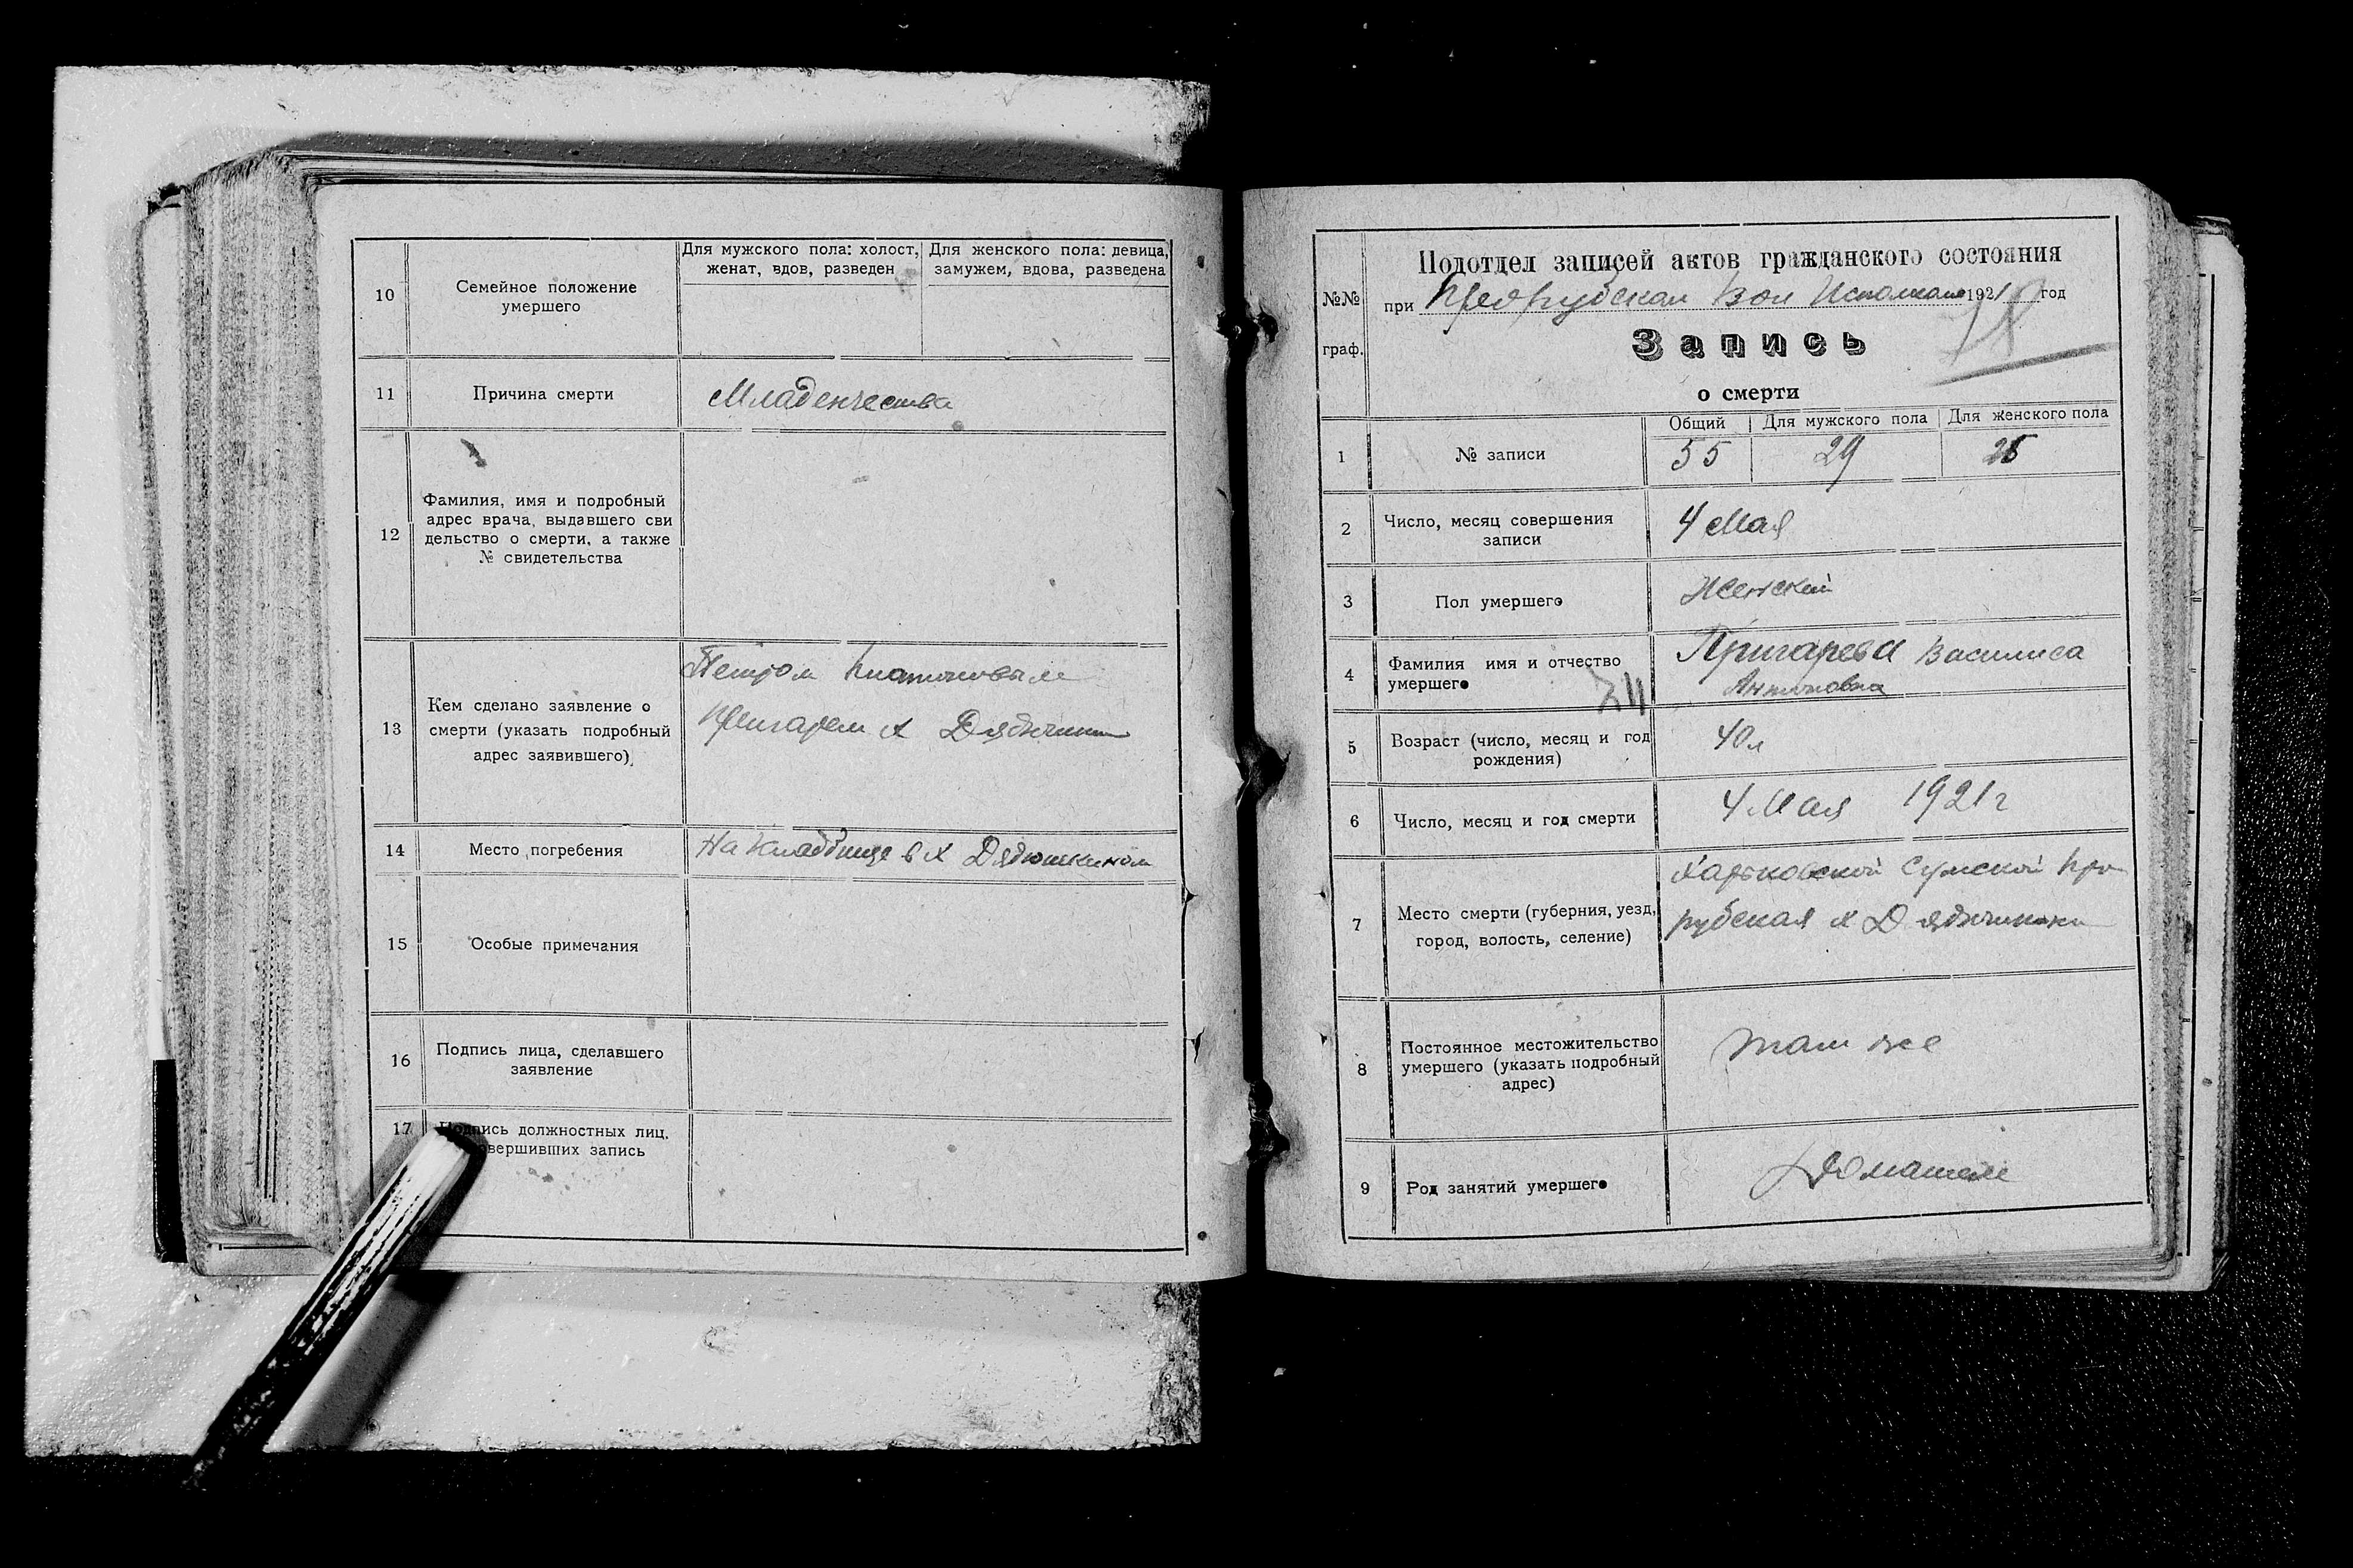 10
Семейное положение
умершего
Для мужского пола: холост,
женат, вдов, разведен
Для женского пола: девица,
замужем, вдова, разведена
11
Причина смерти
Младенчества
12
Фамилия, имя и подробный
адрес врача, выдавшего сви
дельство о смерти, а также
№ свидетельства
13
Кем сделано заявление о
смерти (указать подробный
адрес заявившего)
Петром
х
14
Место погребения
На кладбище в х Дядюшкином
15
Особые примечания
16
Подпись лица, сделавшего
заявление
17
Подпись должностных лиц,
совершивших запись
№№
граф.
Подотдел записей актов гражданского состояния
при Вол Исполкоме 1921 год
Запись
о смерти
1
№ записи
Общий
Для мужского пола
Для женского пола
55
29
26
2
Число, месяц совершения
записи
4 Мая
3
Пол умершего
Женский
4
Фамилия имя и отчество
умершего
Пригарева Василиса
Антоновна
5
Возраст (число, месяц и год
рождения)
40л
6
Число, месяц и год смерти
4 Мая 1921г
7
Место смерти (губерния, уезд,
город, волость, селение)
Харьковской Сумской
рубская х
8
Постоянное местожительство
умершего (указать подробный
адрес)
там же
9
Род занятий умершего